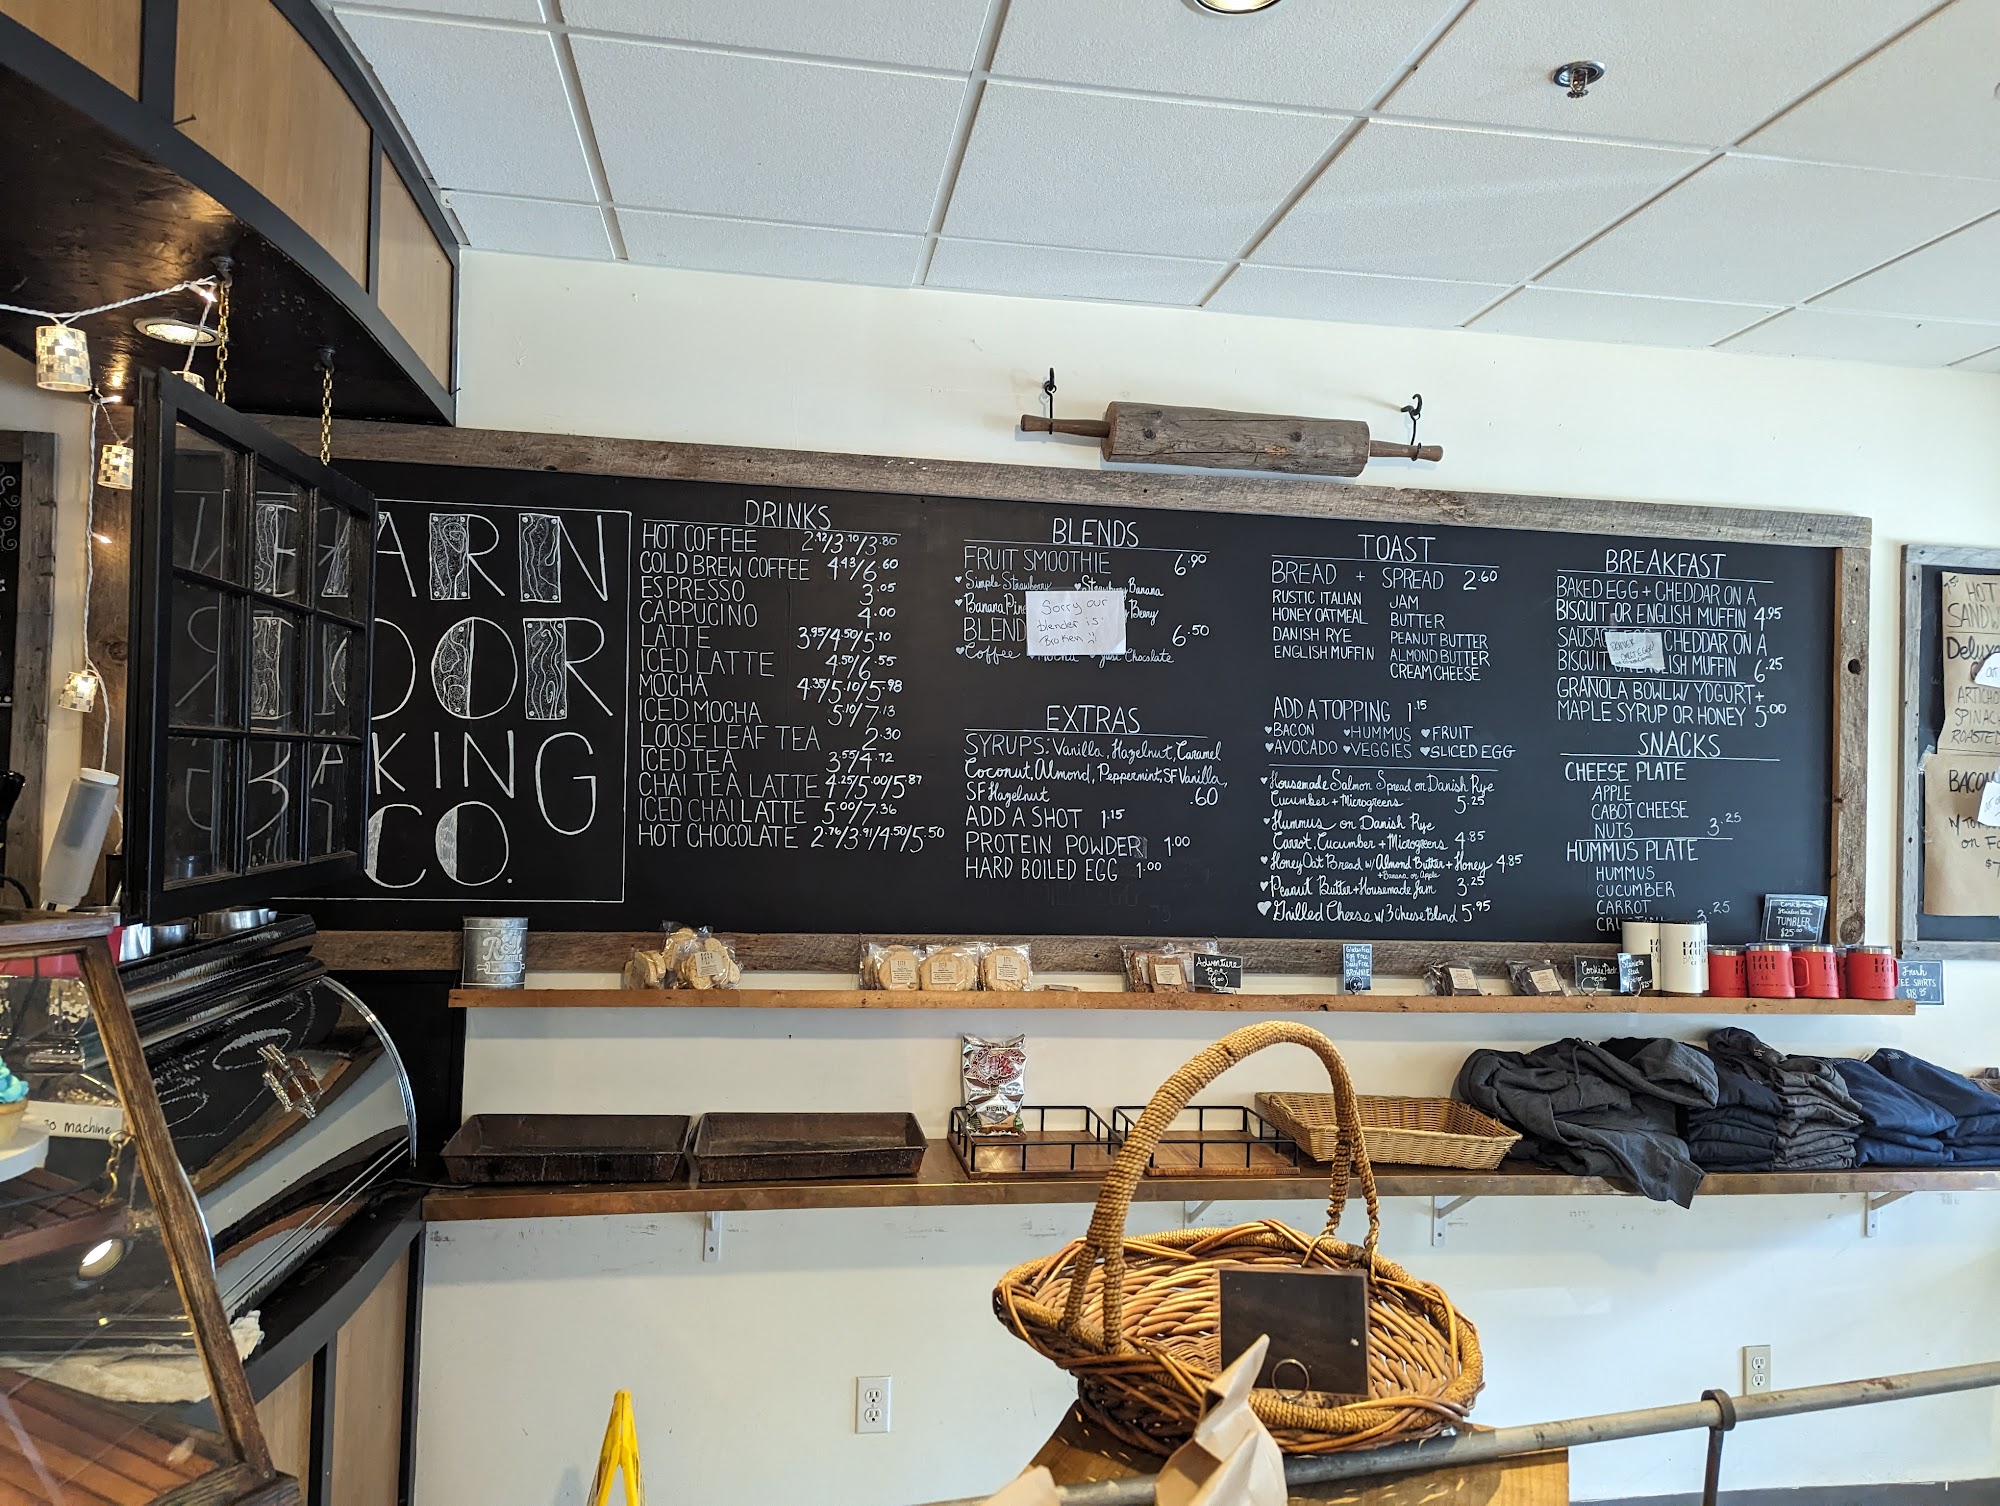 BARN
DOOR
BAKING
CO.
DRINKS
HOT COFFEE 2.12/3.10/3.80
COLD BREW COFFEE 4.43/6.60
ESPRESSO 3.05
CAPPUCINO 4.00
LATTE 3.95/4.50/5.10
ICED LATTE 4.50/6.55
MOCHA 4.35/5.10/5.98
ICED MOCHA 5.10/7.13
LOOSE LEAF TEA 2.30
ICED TEA 3.55/4.72
CHAI TEA LATTE 4.25/5.00/5.87
ICED CHAI LATTE 5.00/7.36
HOT CHOCOLATE 2.76/3.91/4.50/5.50
BLENDS
FRUIT SMOOTHIE 6.90
Simple Strawberry Strawberry Banana
Banana Berry
BLEND 6.50
Coffee Mocha Just Chocolate
Sorry our
blender is
Broken
EXTRAS
SYRUPS: Vanilla, Hazelnut, Caramel
Coconut, Almond, Peppermint, SF Vanilla,
SF Hazelnut .60
ADD A SHOT 1.15
PROTEIN POWDER 1.00
HARD BOILED EGG 1.00
TOAST
BREAD + SPREAD 2.60
RUSTIC ITALIAN JAM
HONEY OATMEAL BUTTER
DANISH RYE PEANUT BUTTER
ENGLISH MUFFIN ALMOND BUTTER
CREAM CHEESE
ADD A TOPPING 1.15
BACON HUMMUS FRUIT
AVOCADO VEGGIES SLICED EGG
Housemade Salmon Spread on Danish Rye
Cucumber + Microgreens 5.25
Hummus on Danish Rye
Carrot, Cucumber + Microgreens 4.85
Honey Oat Bread w/ Almond Butter + Honey 4.85
+ Banana or Apple
Peanut Butter + Housemade Jam 3.25
Grilled Cheese w/ 3 Cheese Blend 5.95
BREAKFAST
BAKED EGG + CHEDDAR ON A
BISCUIT OR ENGLISH MUFFIN 4.95
SAUSAGE EGG + CHEDDAR ON A
BISCUIT OR ENGLISH MUFFIN 6.25
GRANOLA BOWL W/ YOGURT +
MAPLE SYRUP OR HONEY 5.00
SNACKS
CHEESE PLATE
APPLE
CABOT CHEESE
NUTS 3.25
HUMMUS PLATE
HUMMUS
CUCUMBER
CARROT
3.25
HOT
SAND
Deluxe
ARTICHO
SPINAC
ROASTED
BACON
on Fo
TUMBLER
$25.00
Adventure
Box
BROWNIE
Cookie Pack
Fresh
TEE SHIRTS
PLAIN
machine